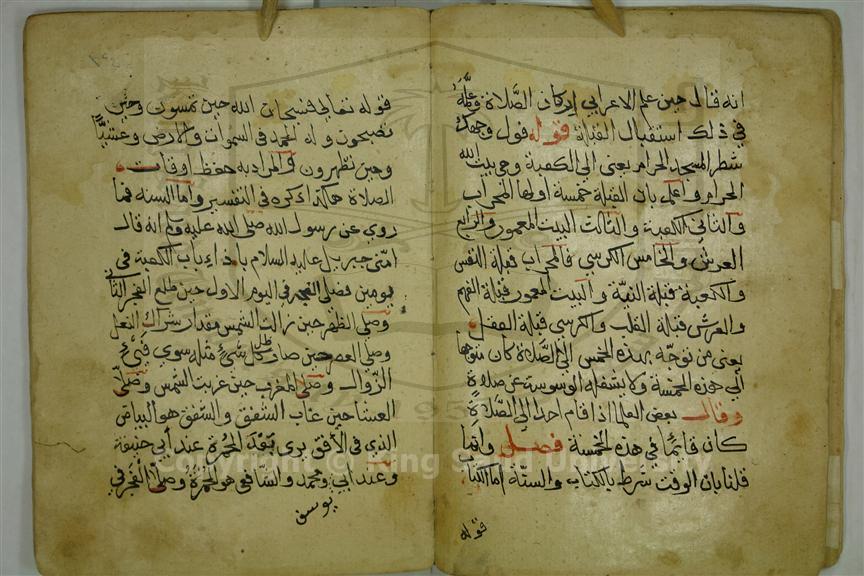 انه قال حين علم الاعرابي اركان الصلاة وعلمه
في ذلك استقبال القبلة قوله فول وجهك
شطر المسجد الحرام يعني الي الكعبة وهي بيت الله
الحرام واعلم بان القبلة خمسة اولها المحراب
والثاني الكعبة والثالث البيت المعمور والرابع
العرش والخامس الكرسي فالمحراب قبلة النفس
والكعبة قبلة النية والبيت المعمور قبلة الفهم
والعرش قبلة القلب والكرسي قبلة العقل
يعني من توجه بهذه الخمس الي الصلاة كان متوجها
الي هذه الخمسة ولا يشغله الوسوسة عن صلاة
وقال بعض العلما اذا قام احد الي الصلاة
كان قايما في هذه الخمسة فصل وانما
قلنا بان الوقت شرط بالكتاب والسنة اما الكتاب
قوله
قوله تعالي فسبحان الله حين تمسون وحين
تصبحون وله الحمد في السموات والارض وعشيا
وحين تظهرون والمراد به حفظ اوقات
الصلاة هكذا ذكره في التفسير واما السنه فما
روي عن رسول الله صلي الله عليه وسلم انه قال
امني جبريل عليه السلام باذاء باب الكعبة في
يومين فصلي الفجر في اليوم الاول حين طلع الفجر الثاني
وصلي الظهر حين زالت الشمس مقدار شراك النعل
وصلي العصر حين صار ظل كل شيء مثله سوي فيء
الزوال وصلي المغرب حين غربت الشمس وصلي
العشا حين غاب الشفق والشفق هو البياض
الذي في الافق يري بعد الحمرة عند ابي حنيفة
وعند ابي ومحمد والشافعي هو الحمرة وصلي الفجر في
يوسف